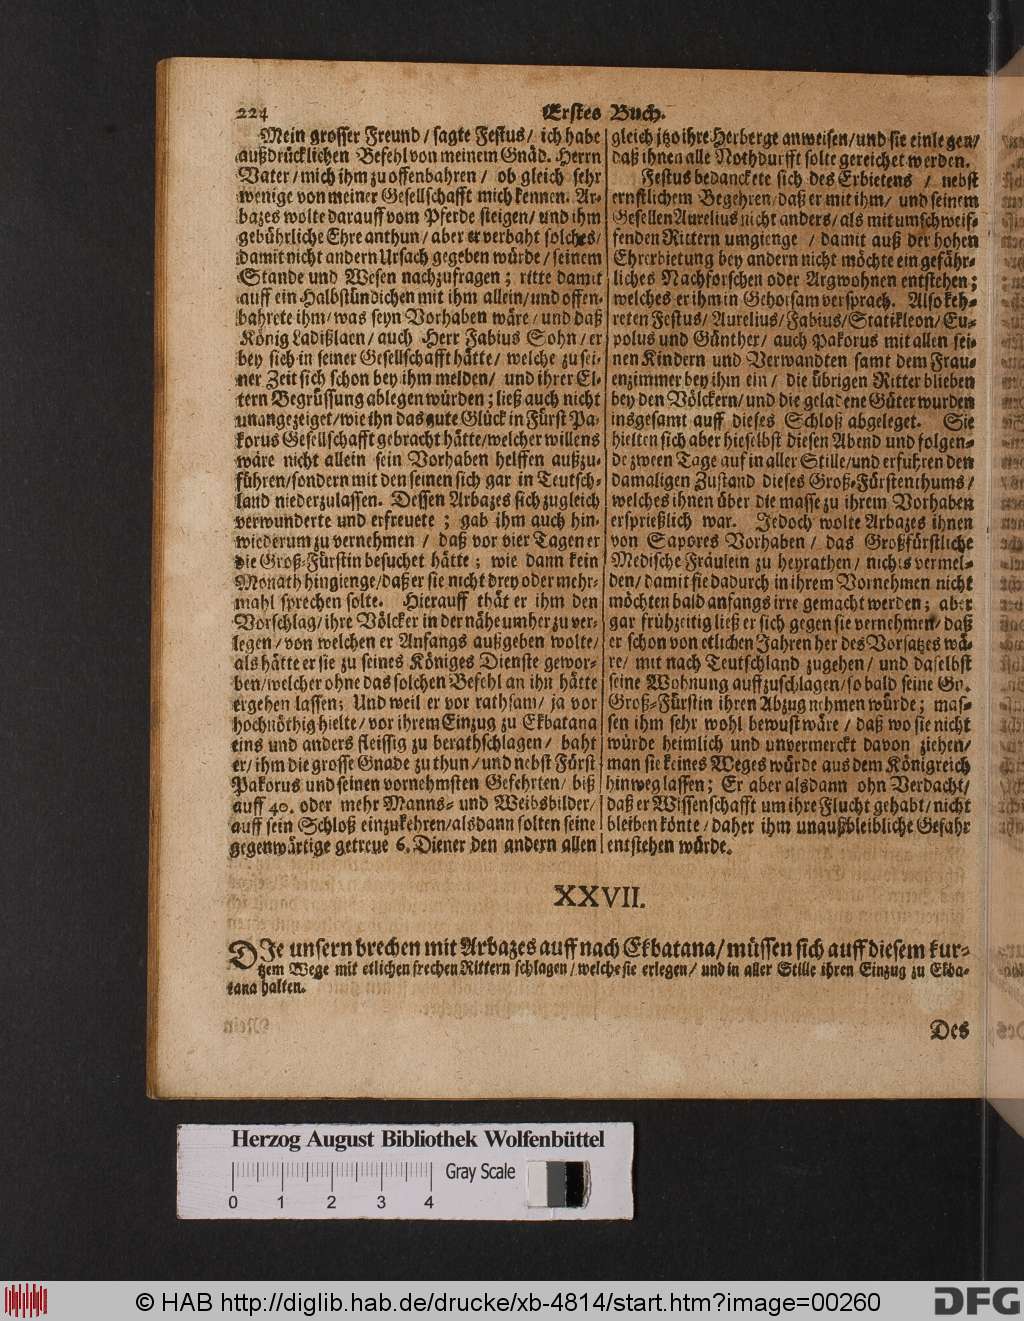 224 Erstes Buch.
Mein grosser Freund / sagte Festus / ich habe
außdrücklichen Befehl von meinem Gnäd. Herrn
Vater / mich ihm zu offenbahren / ob gleich sehr
wenige von meiner Gesellschafft mich kennen. Ar-
bazes wolte darauff vom Pferde steigen / und ihm
gebührliche Ehre anthun / aber er verbaht solches /
damit nicht andern Ursach gegeben würde / seinem
Stande und Wesen nachzufragen ; ritte damit
auff ein Halbstündichen mit ihm allein / und offen-
bahrete ihm / was seyn Vorhaben wäre / und daß
König Ladißlaen / auch Herr Fabius Sohn / er
bey sich in seiner Gesellschafft hätte / welche zu sei-
ner Zeit sich schon bey ihm melden / und ihrer El-
tern Begrüssung ablegen würden ; ließ auch nicht
unangezeiget / wie ihn das gute Glück in Fürst Pa-
korus Gesellschafft gebracht hätte / welcher willens
wäre nicht allein sein Vorhaben helffen außzu-
führen / sondern mit den seinen sich gar in Teutsch-
land niederzulassen. Dessen Arbazes sich zugleich
verwunderte und erfreuete ; gab ihm auch hin-
wiederum zu vernehmen / daß vor vier Tagen er
die Groß-Fürstin besuchet hätte ; wie dann kein
Monath hingienge / daß er sie nicht drey oder mehr-
mahl sprechen solte. Hierauff thät er ihm den
Vorschlag / ihre Völcker in der nähe umher zu ver-
legen / von welchen er Anfangs außgeben wolte /
als hätte er sie zu seines Königes Dienste gewor-
ben / welcher ohne das solchen Befehl an ihn hätte
ergehen lassen ; Und weil er vor rathsam / ja vor
hochnöthig hielte / vor ihrem Einzug zu Ekbatana
eins und anders fleissig zu berathschlagen / baht
er / ihm die grosse Gnade zu thun / und nebst Fürst
Pakorus und seinen vornehmsten Gefehrten / biß
auff 40. oder mehr Manns- und Weibsbilder /
auff sein Schloß einzukehren / alsdann solten seine
gegenwärtige getreue 6. Diener den andern allen
gleich itzo ihre Herberge anweisen / und sie einlegen /
daß ihnen alle Nothdurfft solte gereichet werden.
Festus bedanckete sich des Erbietens / nebst
ernstlichem Begehren / daß er mit ihm / und seinem
Gesellen Aurelius nicht anders / als mit umschweif-
fenden Rittern umgienge / damit auß der hohen
Ehrerbietung bey andern nicht möchte ein gefähr-
liches Nachforschen oder Argwohnen entstehen ;
welches er ihm in Gehorsam versprach. Also keh-
reten Festus / Aurelius / Fabius / Statikleon / Eu-
polus und Günther / auch Pakorus mit allen sei-
nen Kindern und Verwandten samt dem Frau-
enzimmer bey ihm ein / die übrigen Ritter blieben
bey den Völckern / und die geladene Güter wurden
insgesamt auff dieses Schloß abgeleget. Sie
hielten sich aber hieselbst diesen Abend und folgen-
de zween Tage auf in aller Stille / und erfuhren den
damaligen Zustand dieses Groß-Fürstenthums /
welches ihnen über die masse zu ihrem Vorhaben
ersprießlich war. Jedoch wolte Arbazes ihnen
von Sapores Vorhaben / das Großfürstliche
Medische Fräulein zu heyrathen / nichts vermel-
den / damit sie dadurch in ihrem Vornehmen nicht
möchten bald anfangs irre gemacht werden ; aber
gar frühzeitig ließ er sich gegen sie vernehmen / daß
er schon von etlichen Jahren her des Vorsatzes wä-
re / mit nach Teutschland zugehen / und daselbst
seine Wohnung auffzuschlagen / so bald seine Gn.
Groß-Fürstin ihren Abzug nehmen würde ; mas-
sen ihm sehr wohl bewust wäre / daß wo sie nicht
würde heimlich und unvermerckt davon ziehen /
man sie keines Weges würde aus dem Königreich
hinweg lassen ; Er aber alsdann ohn Verdacht /
daß er Wissenschafft um ihre Flucht gehabt / nicht
bleiben könte / daher ihm unaußbleibliche Gefahr
entstehen würde.
XXVII.
DIe unsern brechen mit Arbazes auff nach Ekbatana / müssen sich auff diesem kur-
tzem Wege mit etlichen frechen Rittern schlagen / welche sie erlegen / und in aller Stille ihren Einzug zu Ekba-
tana halten.
Des
Herzog August Bibliothek Wolfenbüttel
Gray Scale
0 1 2 3 4
© HAB http://diglib.hab.de/drucke/xb-4814/start.htm?image=00260
DFG